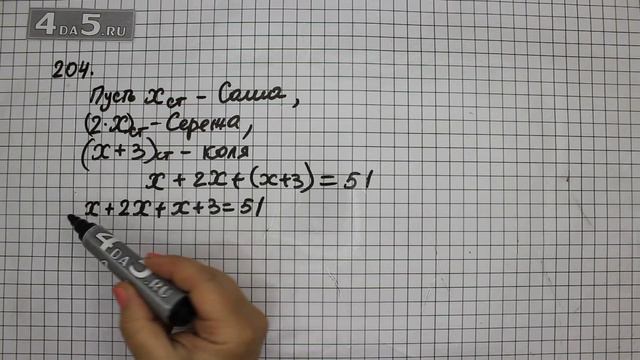 4DA5.RU
204.
Пусть x ст – Саша,
(2·x)ст – Сережа,
(x+3)ст – Коля
x + 2x + (x+3) = 51
x + 2x + x + 3 = 51
4DA5.RU